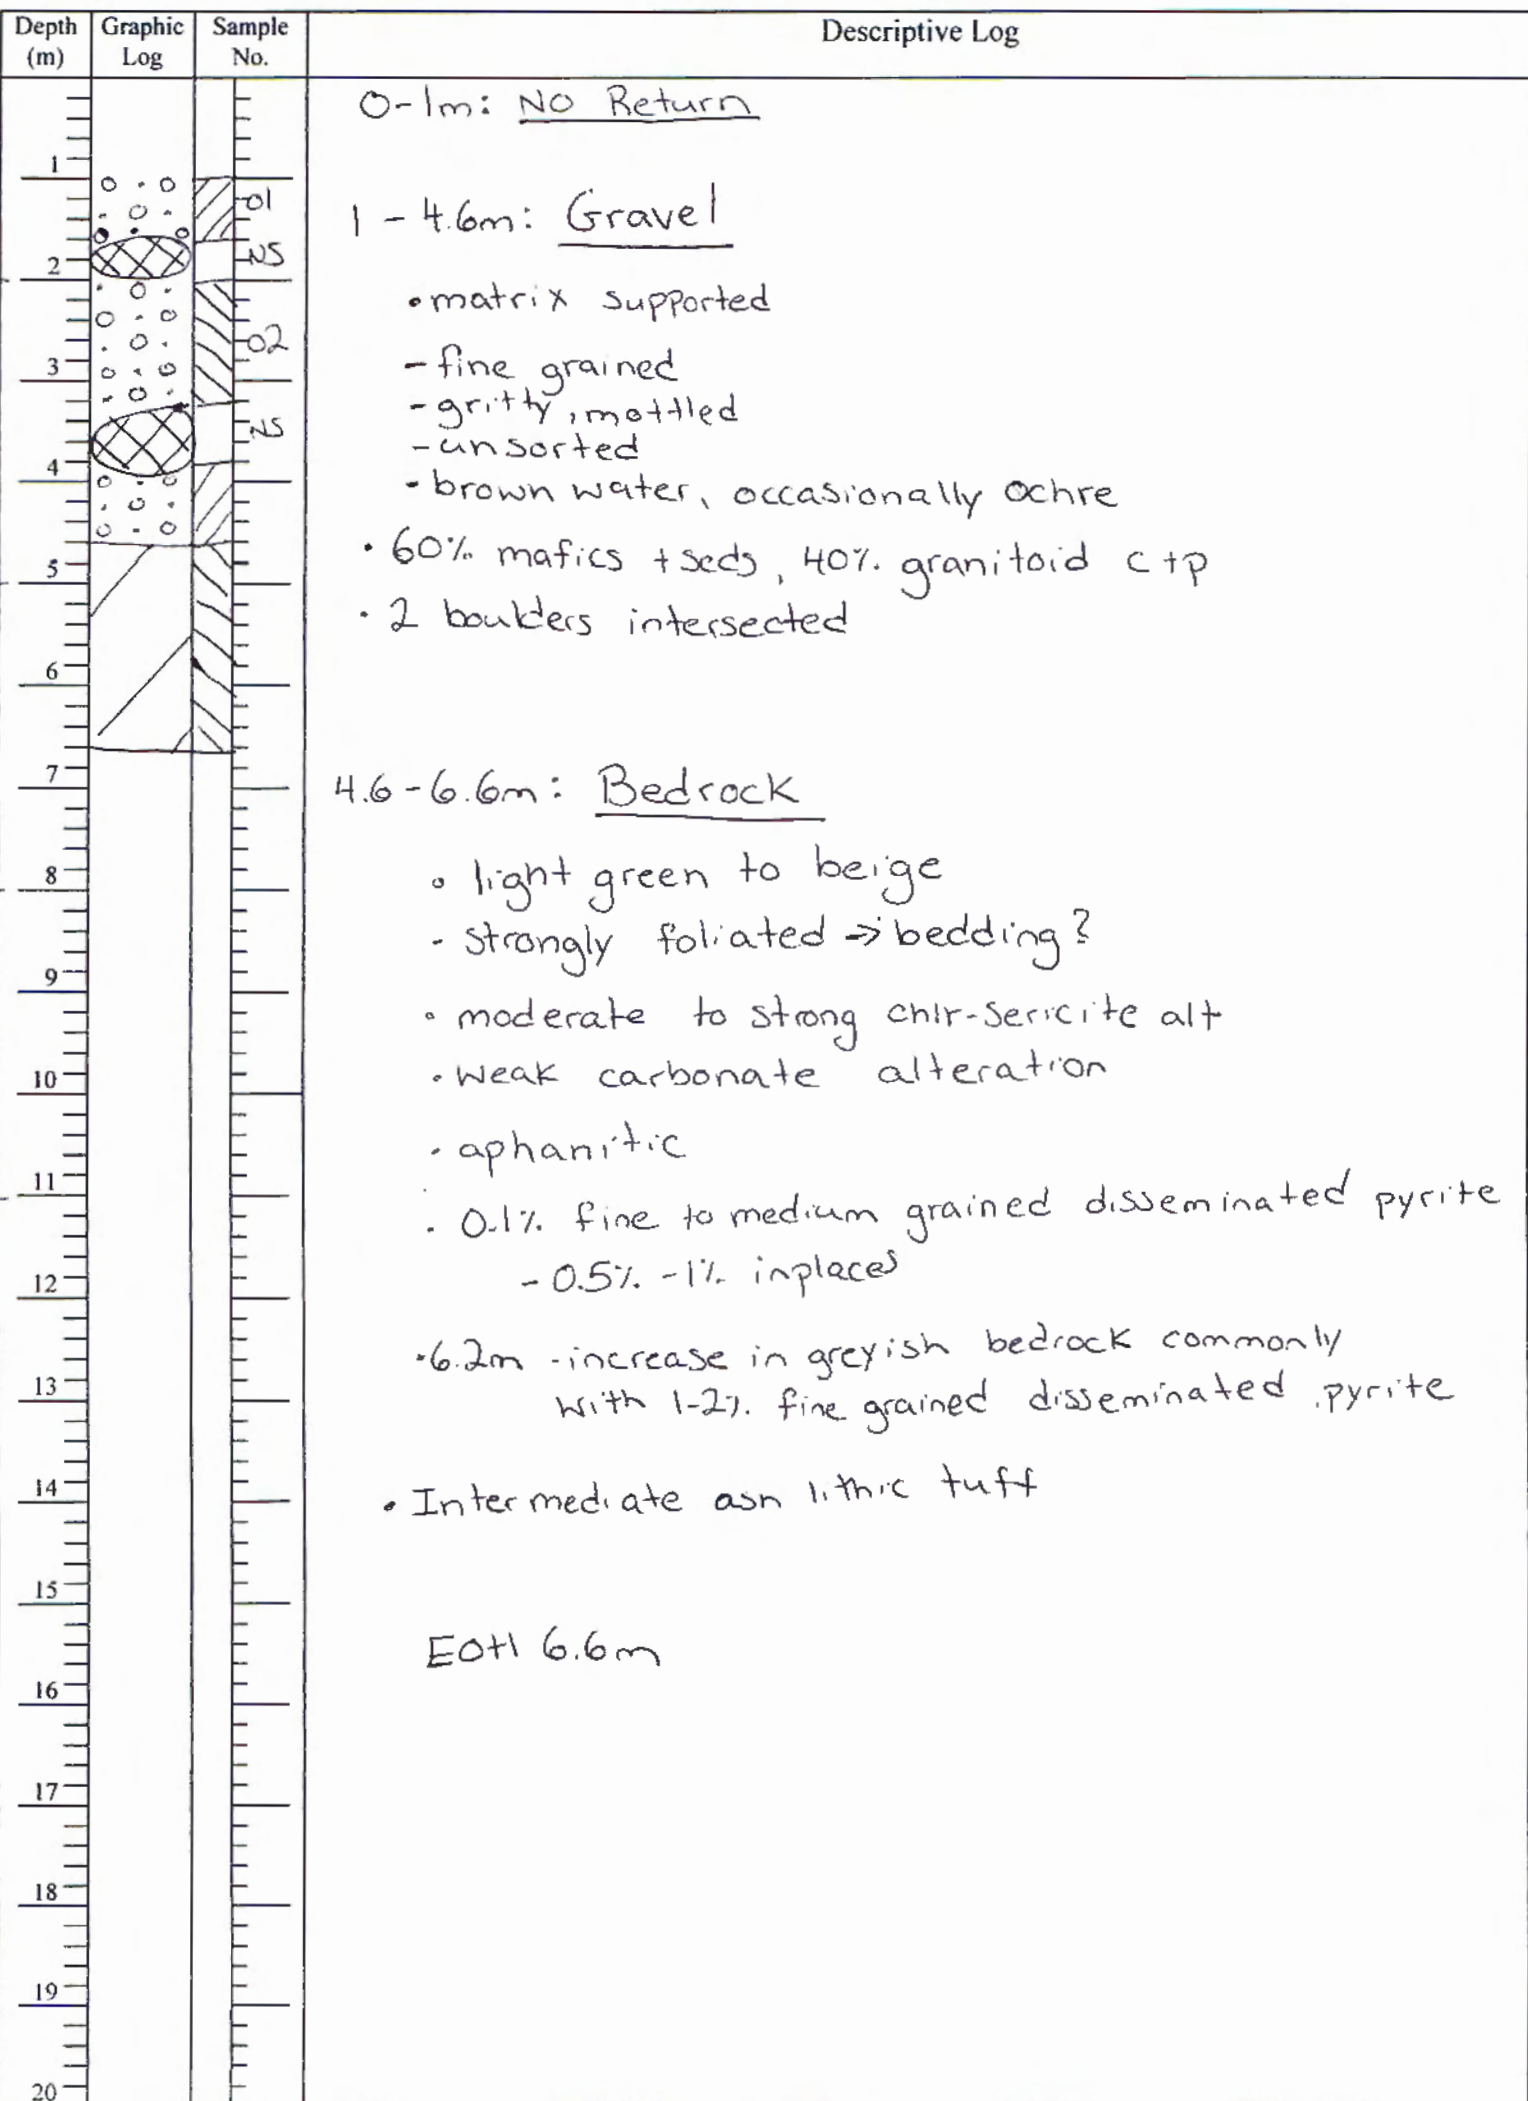 Depth (m) Graphic Log Sample No. Descriptive Log
0-1m: NO Return
1
01
1 - 4.6m: Gravel
NS
2
• matrix supported
02
3
- fine grained
- gritty, mottled
NS
- unsorted
4
- brown water, occasionally ochre
• 60% mafics + seds, 40% granitoid c+p
5
• 2 boulders intersected
6
7
4.6-6.6m: Bedrock
8
• light green to beige
- strongly foliated -> bedding?
9
• moderate to strong chlr-sericite alt
10
• weak carbonate alteration
• aphanitic
11
• 0.1% fine to medium grained disseminated pyrite
12
- 0.5% - 1% inplaces
• 6.2m - increase in greyish bedrock commonly
13
with 1-2% fine grained disseminated pyrite
14
• Intermediate ash lithic tuff
15
EOH 6.6m
16
17
18
19
20